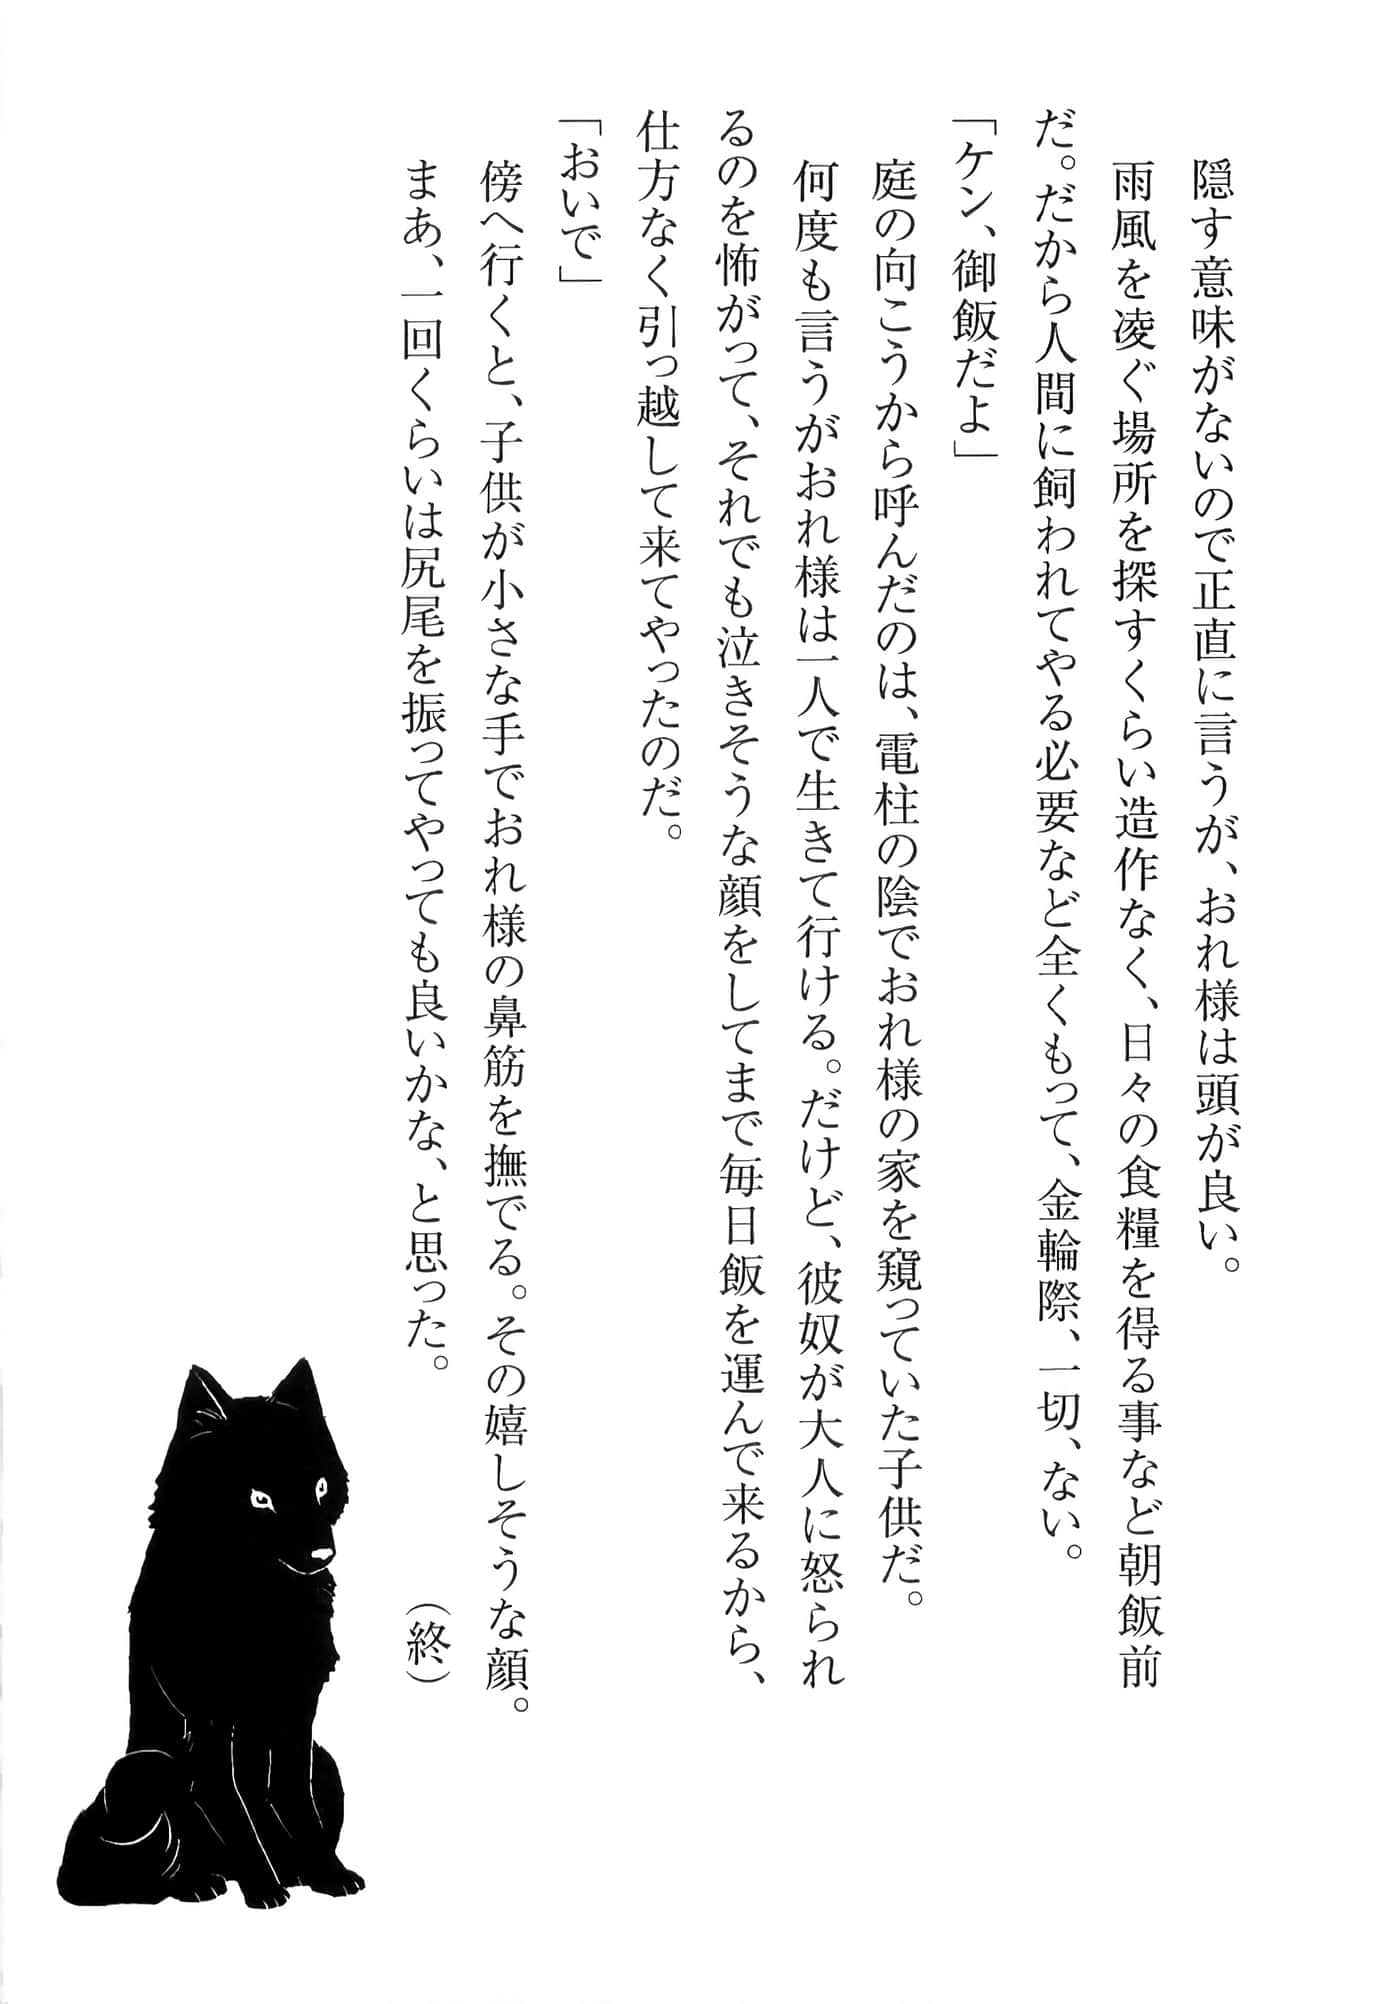 隠す意味がないので正直に言うが、おれ様は頭が良い。
雨風を凌ぐ場所を探すくらい造作なく、日々の食糧を得る事など朝飯前
だ。だから人間に飼われてやる必要など全くもって、金輪際、一切、ない。
「ケン、御飯だよ」
庭の向こうから呼んだのは、電柱の陰でおれ様の家を窺っていた子供だ。
何度も言うがおれ様は一人で生きて行ける。だけど、彼奴が大人に怒られ
るのを怖がって、それでも泣きそうな顔をしてまで毎日飯を運んで来るから、
仕方なく引っ越して来てやったのだ。
「おいで」
傍へ行くと、子供が小さな手でおれ様の鼻筋を撫でる。その嬉しそうな顔。
まあ、一回くらいは尻尾を振ってやっても良いかな、と思った。
（終）